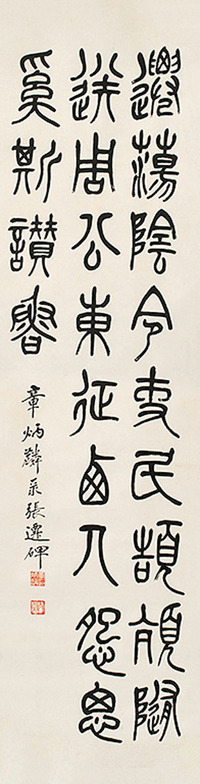 遷蕩陰令吏民頡頏隨
送周公東征西人怨思
奚斯讚魯
章炳麟录張遷碑